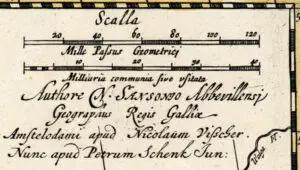 Scalla
20 40 60 80 100 120
Mille Passus Geometrici
10 20 30 40
Milliaria communia sive usitata
Authore N. SANSONIO Abbevillensi
Geographus Regis Galliæ
Amstelodami apud Nicolaum Visscher.
Nunc apud Petrum Schenk Iun: